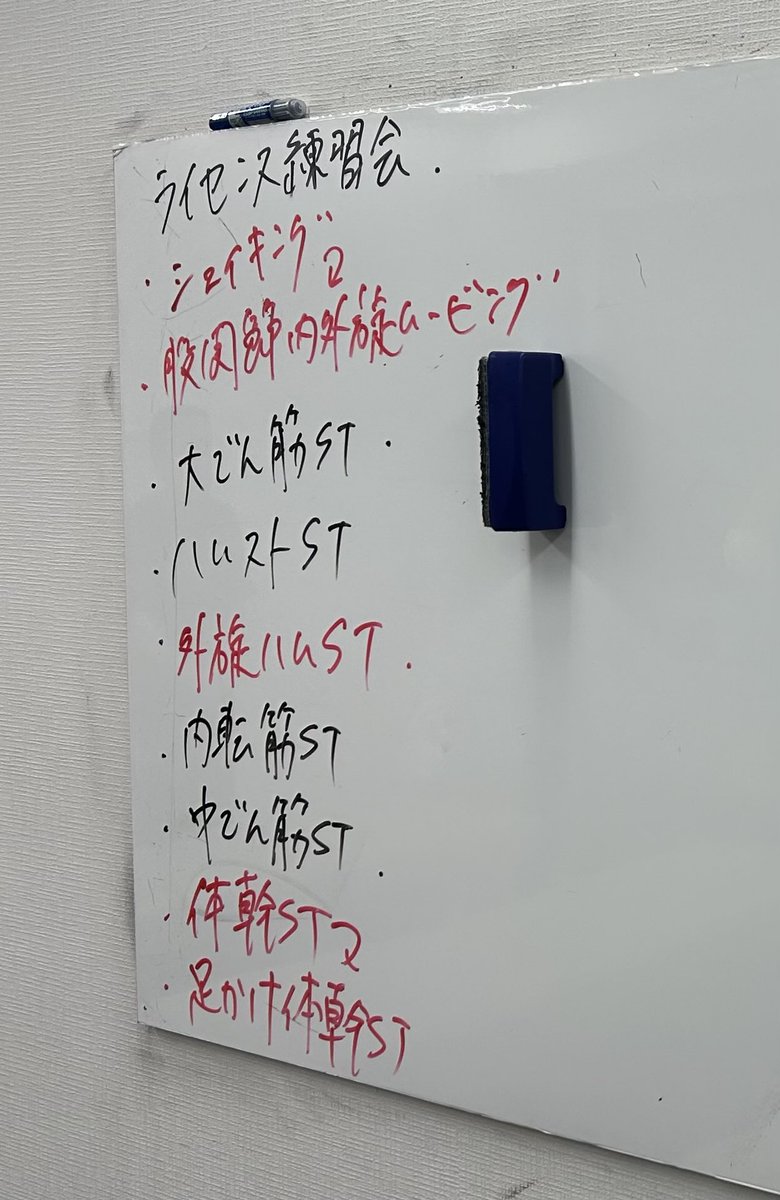 ライセンス練習会.
・シェイキング
・股関節内外旋ムービング
・大でん筋ST
・ハムストST
・外旋ハムST
・内転筋ST
・中でん筋ST
・体幹ST
・足かけ体幹ST